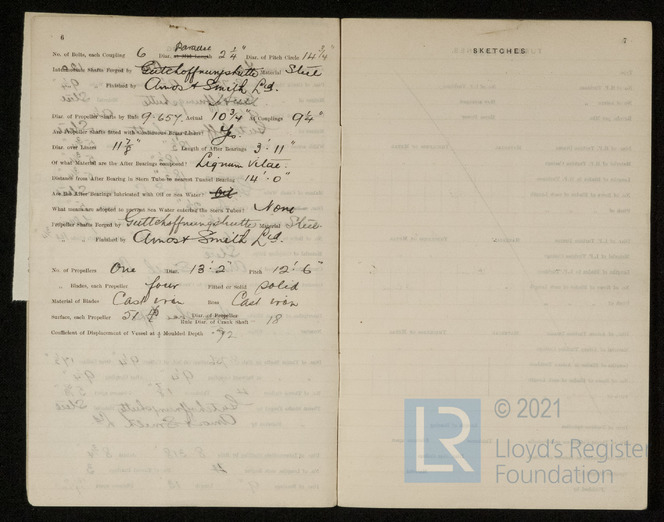 6
No. of Bolts, each Coupling 6 Diar. at Mid Length Paradise 2 1/4" Diar. of Pitch Circle 14 3/4"
Intermediate Shafts Forged by Gutehoffnungshutte Material Steel
" Finished by Amos & Smith Ltd.
Diar. of Propeller Shafts by Rule 9.657 Actual 10 3/4" At Couplings 9 1/4"
Are Propeller Shafts fitted with Continuous Brass Liners? Yes
Diar. over Liners 11 7/8" Length of After Bearings 3'-11"
Of what Material are the After Bearings composed? Lignum Vitae.
Distance from After Bearing in Stern Tube to nearest Tunnel Bearing 14'-0"
Are the After Bearings lubricated with Oil or Sea Water?
What means are adopted to prevent Sea Water entering the Stern Tubes? None
Propeller Shafts Forged by Guttehoffnungshutte Material Steel
" Finished by Amos & Smith Ltd.
No. of Propellers One Diar. 13'-2" Pitch 12'-6"
" Blades, each Propeller four Fitted or Solid solid
Material of Blades Cast iron Boss Cast iron
Surface, each Propeller 51 Diar. of Propeller / Rule Diar. of Crank Shaft 18
Coefficient of Displacement of Vessel at 3/4 Moulded Depth .792
7
SKETCHES
LR
© 2021
Lloyd's Register
Foundation